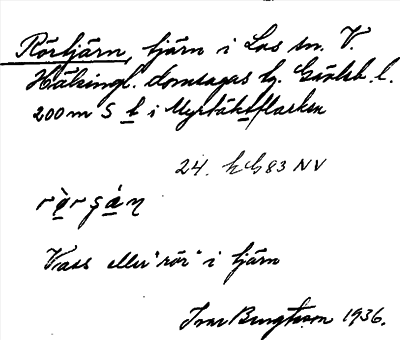 Rörtjärn, tjärn i Los sn. V.
Hälsingl. domsagas tg. Gävleb. l.
200 m S b i Myrbäcksflacken
24. h G 83 NV
Vass eller "rör" i tjärn
Ivar Bengtsson 1936.